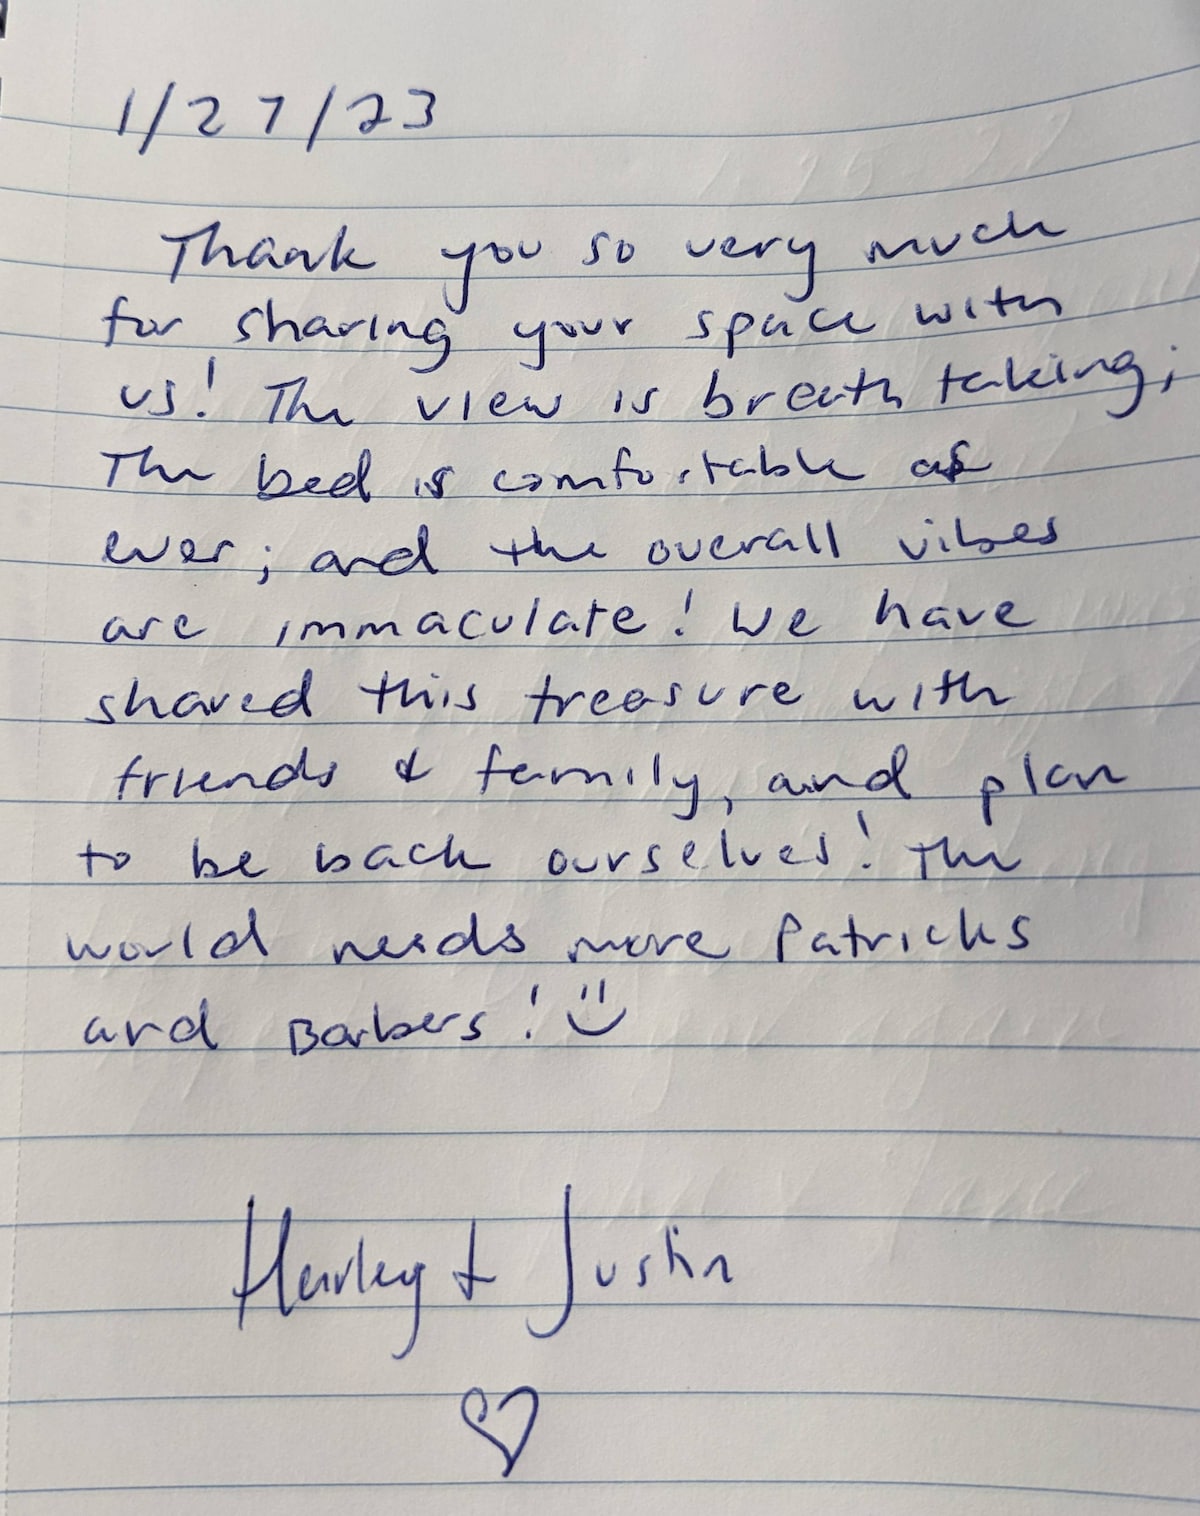 1/27/23
Thank you so very much
for sharing your space with
us! The view is breath taking;
The bed is comfortable as
ever; and the overall vibes
are immaculate! We have
shared this treasure with
friends & family, and plan
to be back ourselves! The
world needs more Patricks
and Barbers! :)
Harley & Justin
♡